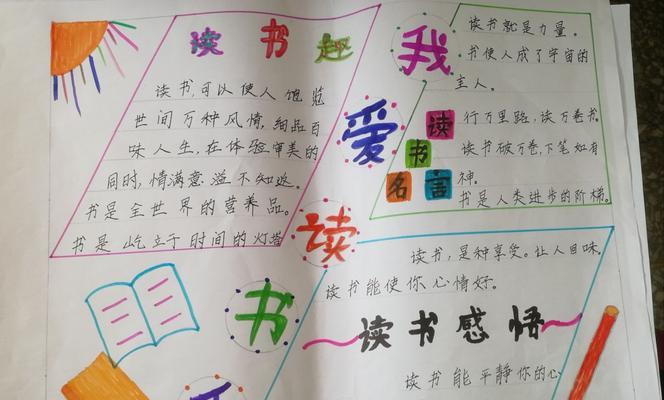 读书趣
读书,可以使人饱览
世间万种风情,细品百
味人生,在体验审美的
同时,情满意溢不知迟。
书是全世界的营养品。
书是屹立于时间的灯塔
我
爱
读
书
读书就是力量。
书使人成了宇宙的
主人。
读书
名言
行万里路,读万卷书。
读书破万卷,下笔如有
神。
书是人类进步的阶梯。
读书,是种享受。让人回味。
读书能使你心情好。
读书感悟
读书能平静你的心